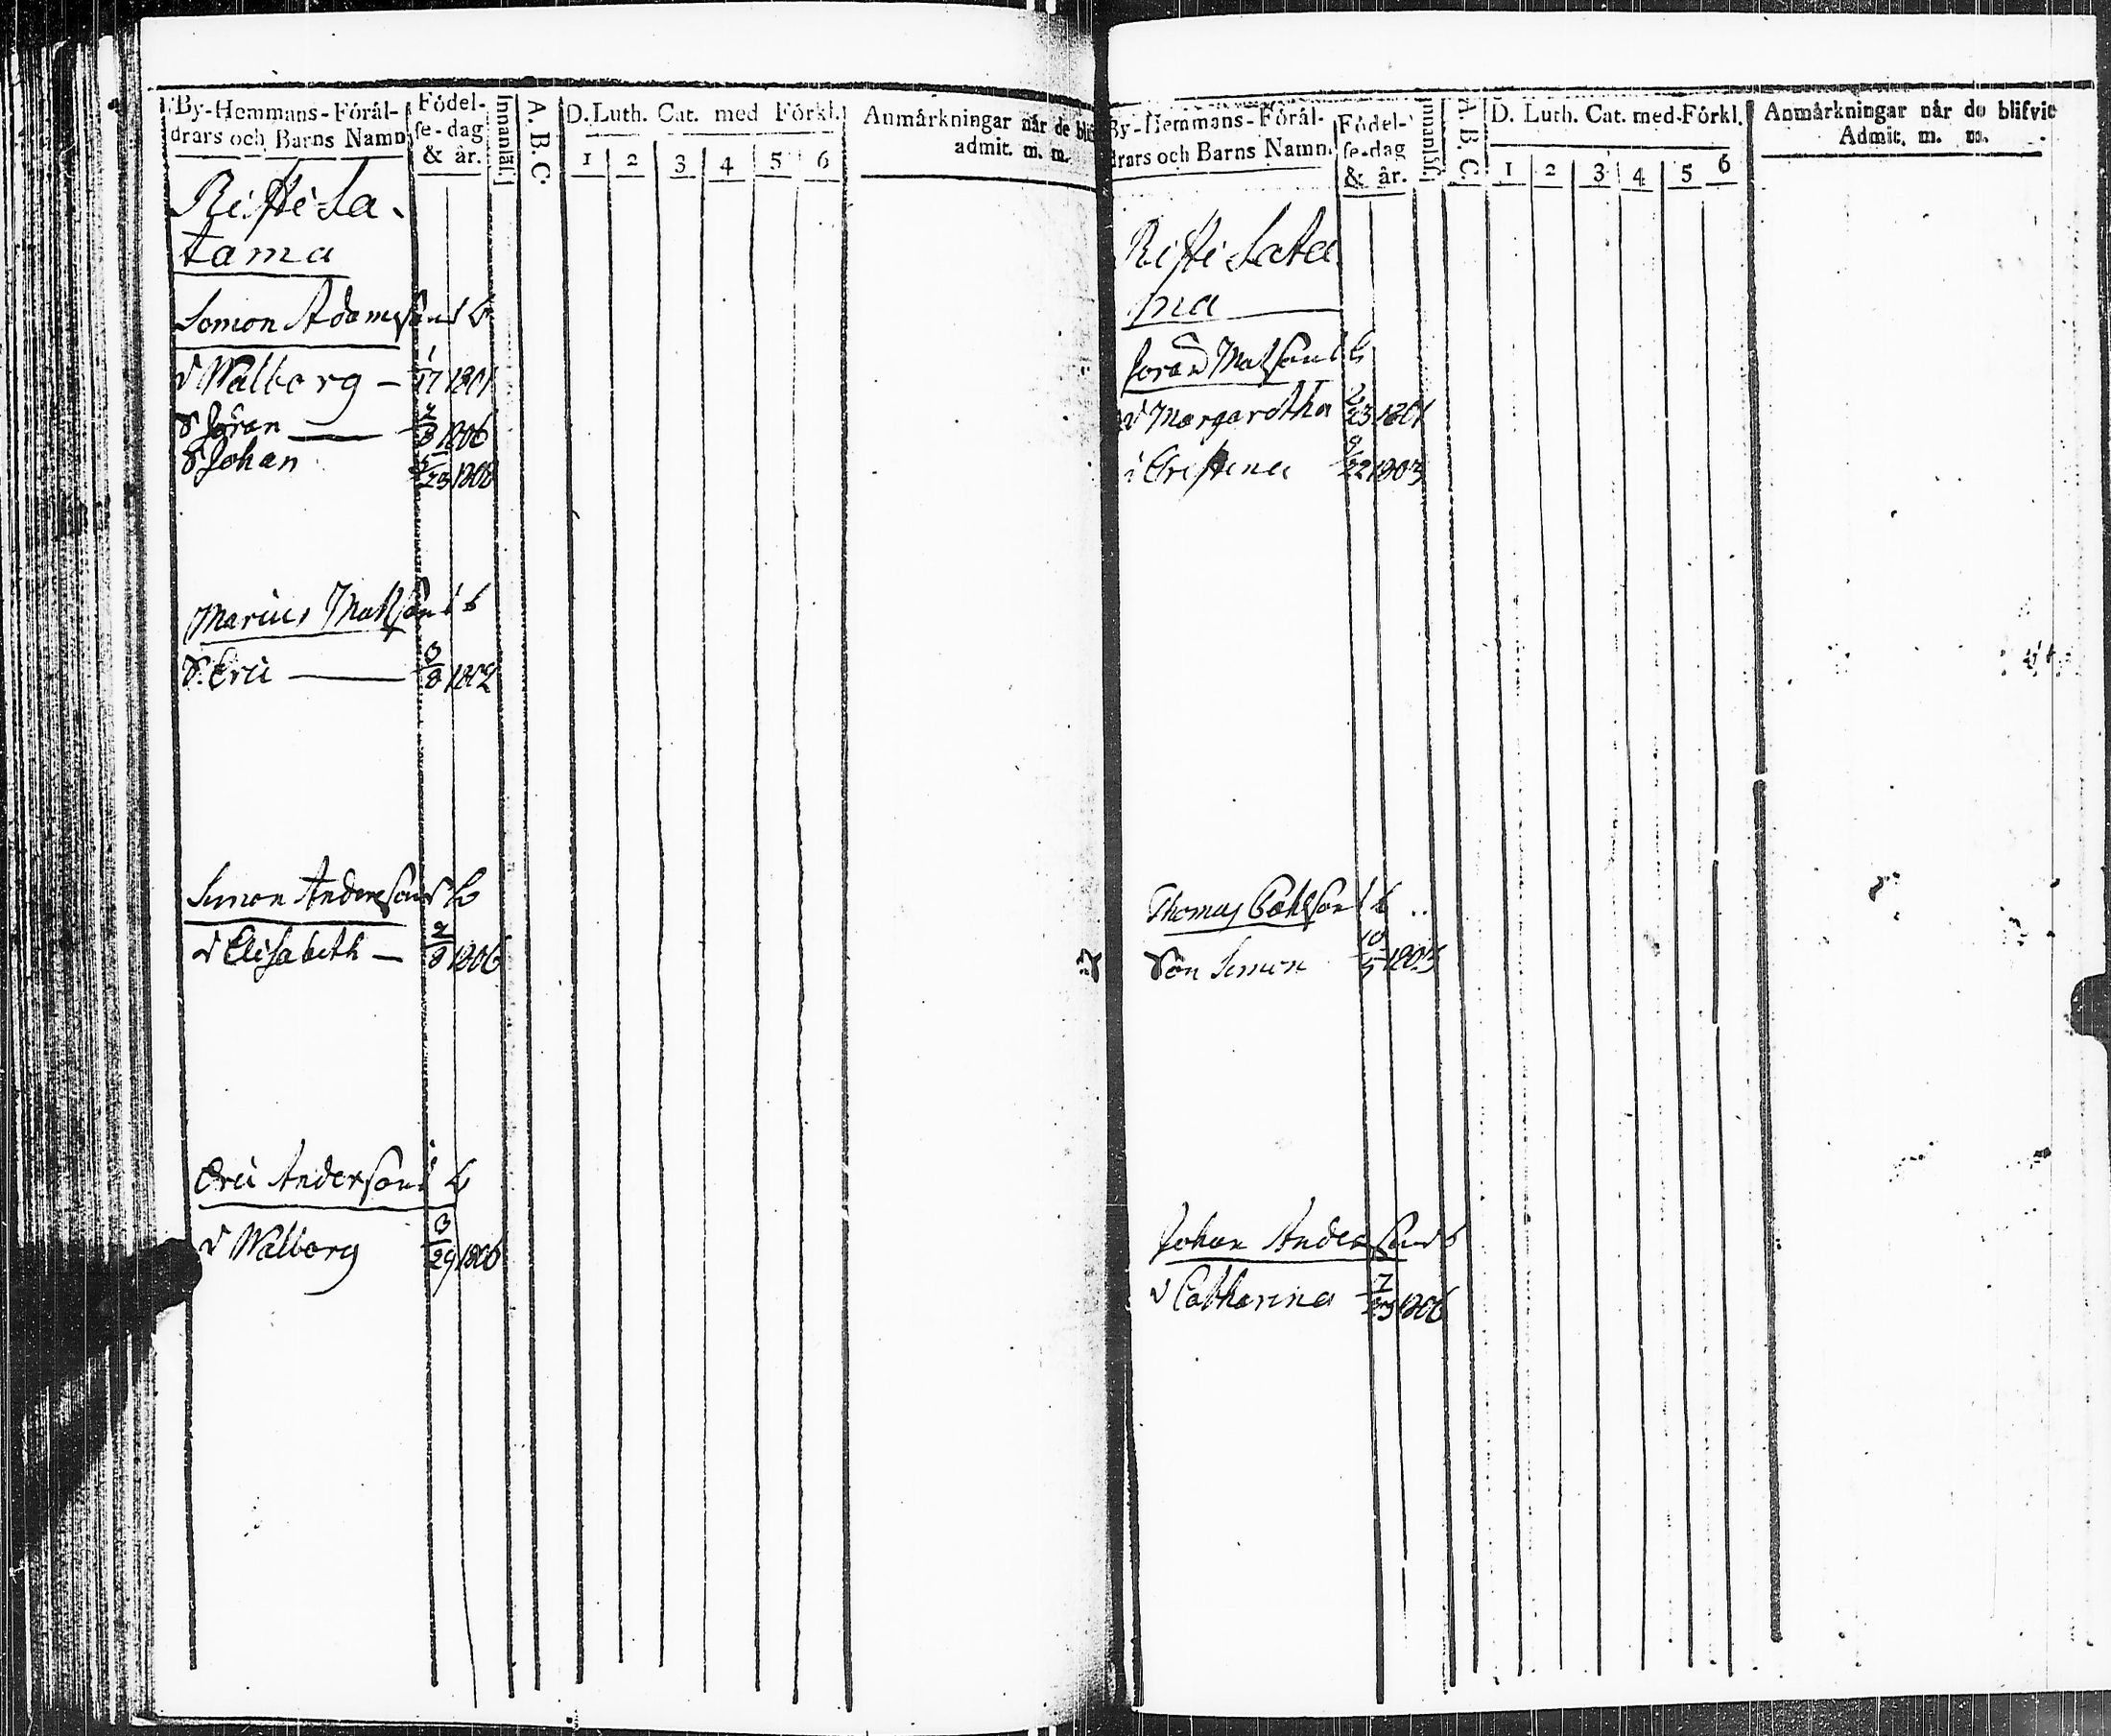 By-Hemmans-Förål-
drars och Barns Namn
Födel-
se-dag
& år.
Innanläs.
A. B. C.
D. Luth. Cat. med Förkl.
1 2 3 4 5 6
Anmårkningar når de
admit. m. m.
Risti La-
tama
Simon Adamsons b
d Walborg — 1/17 1801
S Jöran — 2/8 1806
S Johan 5/23 1808
Marius Matsons b
S. Eric — 1802
Simon Andersons b
d Elisabeth — 2/8 1806
Eric Andersons b
d Walborg 3/29 1806
By-Hemmans-Förål-
drars och Barns Namn.
Födel-
se-dag
& år.
Innanläs.
A. B. C.
D. Luth. Cat. med Förkl.
1 2 3 4 5 6
Anmårkningar når de blifvit
Admit. m. m.
Risti Lata
ma
Jöran Matsons b
d Margaretha 2/23 1801
d Christina 9/22 1803
Thomas b
Son Simon 10/5 1803
Johan Andersons b
d Catharina 7/23 1806